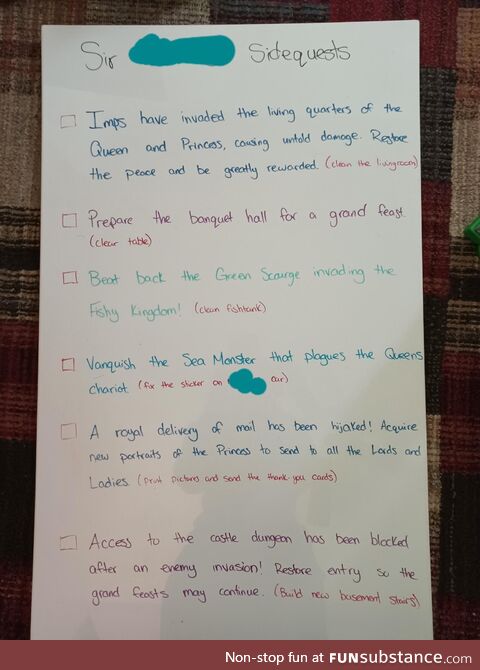 Sir Sidequests
Imps have invaded the living quarters of the
Queen and Princess, causing untold damage. Restore
the peace and be greatly rewarded. (clean the livingroom)
Prepare the banquet hall for a grand feast.
(clear table)
Beat back the Green Scourge invading the
Fishy Kingdom! (clean fishtank)
Vanquish the Sea Monster that plagues the Queens
chariot. (fix the sticker on car)
A royal delivery of mail has been hijaked! Acquire
new portraits of the Princess to send to all the Lords and
Ladies. (print pictures and send the thank you cards)
Access to the castle dungeon has been blocked
after an enemy invasion! Restore entry so the
grand feasts may continue. (Build new basement stairs)
Non-stop fun at FUNsubstance.com